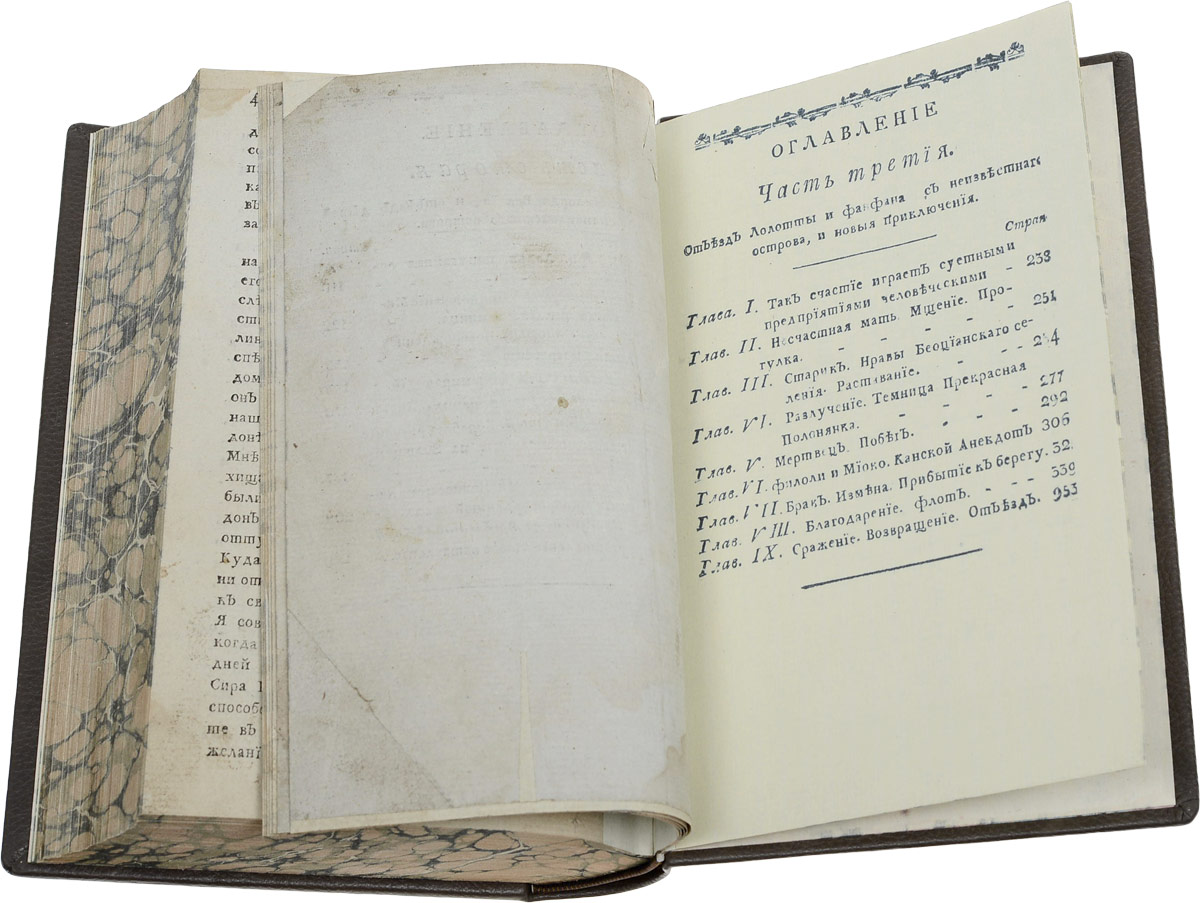 4
д
со
п
ка
въ
за
на
его
слѣ
сти
лин
спѣ
дом
онъ
наш
донѣ
Мнѣ
хища
были
донъ
отту
Куда
ни от
къ св
Я сов
когда
дней
Сира
способ
те въ
желані
ОГЛАВЛЕНІЕ
Часть третія.
Отъѣздъ Лолотты и фанфана съ неизвѣстнаго
острова, и новыя приключенія.
Стран
Глава. I. Такъ счастіе играетъ суетными
предпріятіями человѣческими - 238
Глав. II. Несчастная мать. Мщеніе. Про-
гулка. - - - - - 251
Глав. III. Старикъ. Нравы Беоціанскаго се-
ленія. Раставаніе. - - - 264
Глав. VI. Разлученіе. Темница Прекрасная
Полонянка. - - - - 277
Глав. V. Мертвецъ. Побѣгъ. - - - 292
Глав. VI. филоли и Міоко. Канской Анекдотъ 306
Глав. VII. Бракъ. Измѣна. Прибытіе къ берегу. 32
Глав. VIII. Благодареніе. Флотъ. - - - 339
Глав. IX. Сраженіе. Возвращеніе. Отъѣздъ. 953